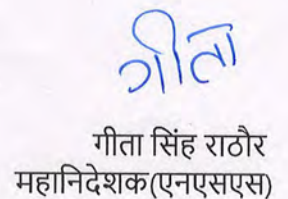 गीता
गीता सिंह राठौर
महानिदेशक(एनएसएस)